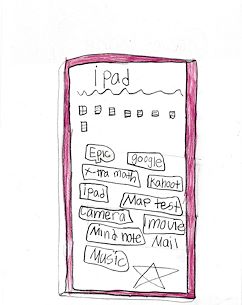 ipad
Epic google
x-tra math Kahoot
Ipad Map test
camera imovie
Mind note Mail
Music